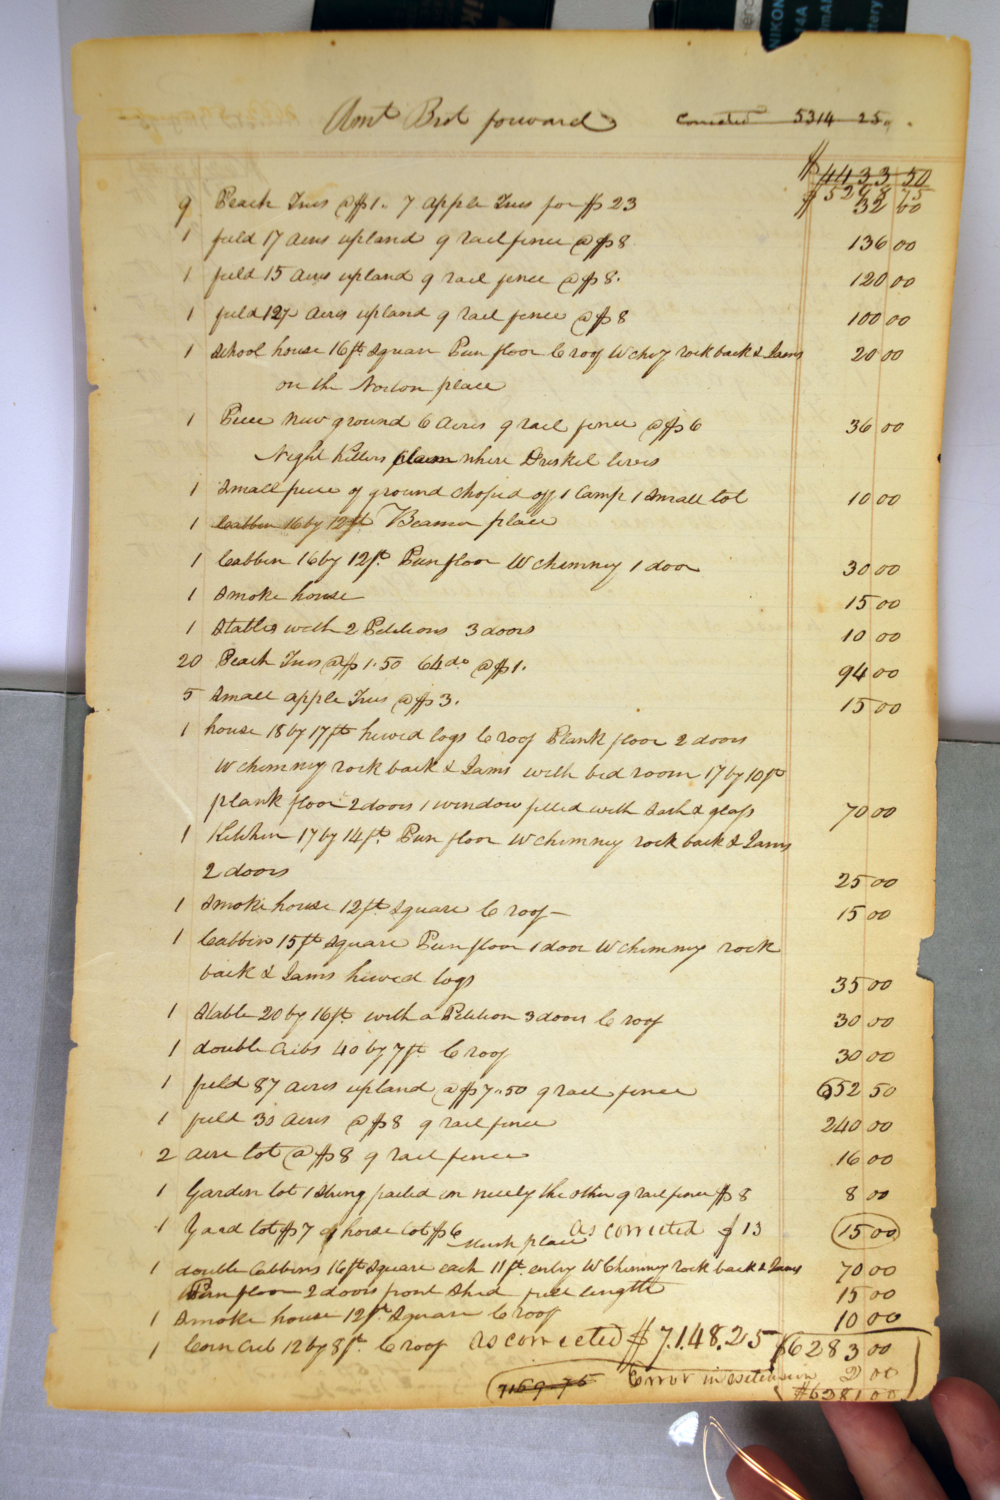 Amt Brot forward Corrected 5314 25
$4433 50
$5298 75
9 Peach Trees @ $1. 7 apple Trees for $23 32 00
1 field 17 acres upland 9 rail fence @ $8 136 00
1 field 15 acres upland 9 rail fence @ $8. 120 00
1 field 12½ acres upland 9 rail fence @ $8 100 00
1 School house 16ft Square Pun floor C roof W chey rock back & Jams 20 00
on the Norton place
1 Piece new ground 6 acres 9 rail fence @ $6 36 00
Night Killers where Driskel lives
1 Small piece of ground choped off 1 Camp 1 Small lot 10 00
1 Cabbin 16 by 12ft Beamer place
1 Cabbin 16 by 12ft. Pun floor W chimney 1 door 30 00
1 Smoke house 15 00
1 Stables with 2 Petitions 3 doors 10 00
20 Peach Trees @ $1.50 64 do @ $1. 94 00
5 Small apple Trees @ $3. 15 00
1 house 18 by 17ft hewed logs C roof Plank floor 2 doors
W chimney rock back & Jams with bed room 17 by 10ft
plank floor 2 doors 1 window filled with Sash & glass 70 00
1 Kitchen 17 by 14ft. Pun floor W chimney rock back & Jams
2 doors 25 00
1 Smoke house 12ft Square C roof 15 00
1 Cabbin 15ft Square Pun floor 1 door W chimney rock
back & Jams hewed logs 35 00
1 Stable 20 by 16ft. with a Petition 3 doors C roof 30 00
1 double Cribs 40 by 7ft C roof 30 00
1 field 87 acres upland @ $7.50 9 rail fence 652 50
1 field 30 acres @ $8 9 rail fence 240 00
2 acre lot @ $8 9 rail fence 16 00
1 Garden lot 1 String pailed in nicely the other 9 rail fence $8 8 00
1 Yard lot $7 1 horse lot $6 as corrected $13 15 00
Mush place
1 double Cabbins 16ft Square each 11ft. entry W Chimney rock back & Jams 70 00
Pun floor 2 doors front Shed full length 15 00
1 Smoke house 12ft. Square C roof 10 00
1 Corn Crib 12 by 8ft. C roof as corrected $7.148.25 $6283 00
7169 75 Error in extension 2 00
$6281 00